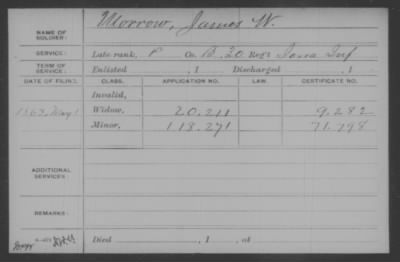 NAME OF SOLDIER: Morrow, James W.
SERVICE: Late rank, P Co. B, 20 Reg't Iowa Inf
TERM OF SERVICE: Enlisted , 1 Discharged , 1
DATE OF FILING. CLASS. APPLICATION NO. LAW. CERTIFICATE NO.
Invalid,
1863, May 1 Widow, 20,211 9,282
Minor, 118,271 71,798
ADDITIONAL SERVICES:
REMARKS:
Died , 1 , at